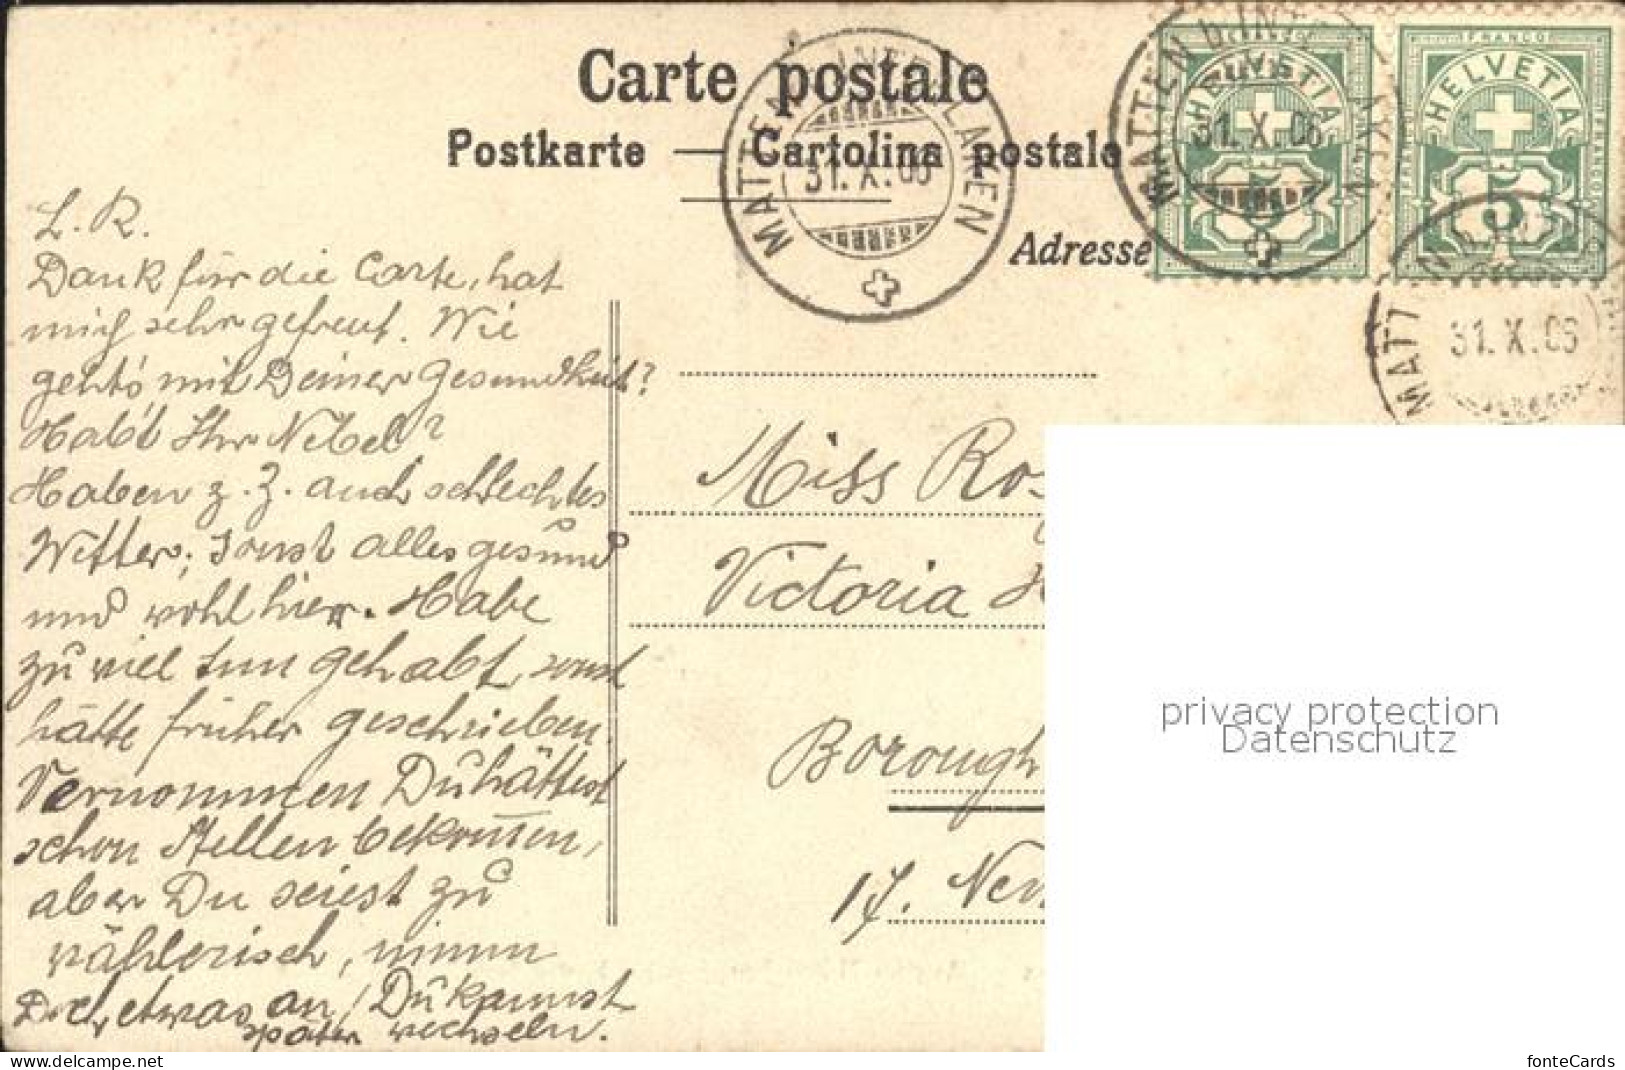 Carte postale
Postkarte — Cartolina postale
Adresse
MATTEN b. INTERLAKEN
31.X.06
MATTEN b. INT
31.X.06
HELVETIA
5
FRANCO
HELVETIA
5
MATT
31.X.06
L. R.
Dank für die Carte, hat
mich sehr gefreut. Wie
geht's mit Deiner Gesundheit?
Habt Ihr Nebel?
Haben z. Z. auch schlechtes
Wetter; sonst alles gesund
und wohl hier. Habe
zu viel tun gehabt, sonst
hätte früher geschrieben.
Vernommen Du hättest
schon Stellen bekom̅en,
aber Du seiest zu
wählerisch, nimm
Doch etwas an, Du kannst
später wechseln.
Miss Ros
Victoria H
Borough
17. New
privacy protection
Datenschutz
the world's largest marketplace for collectors
fonteCards